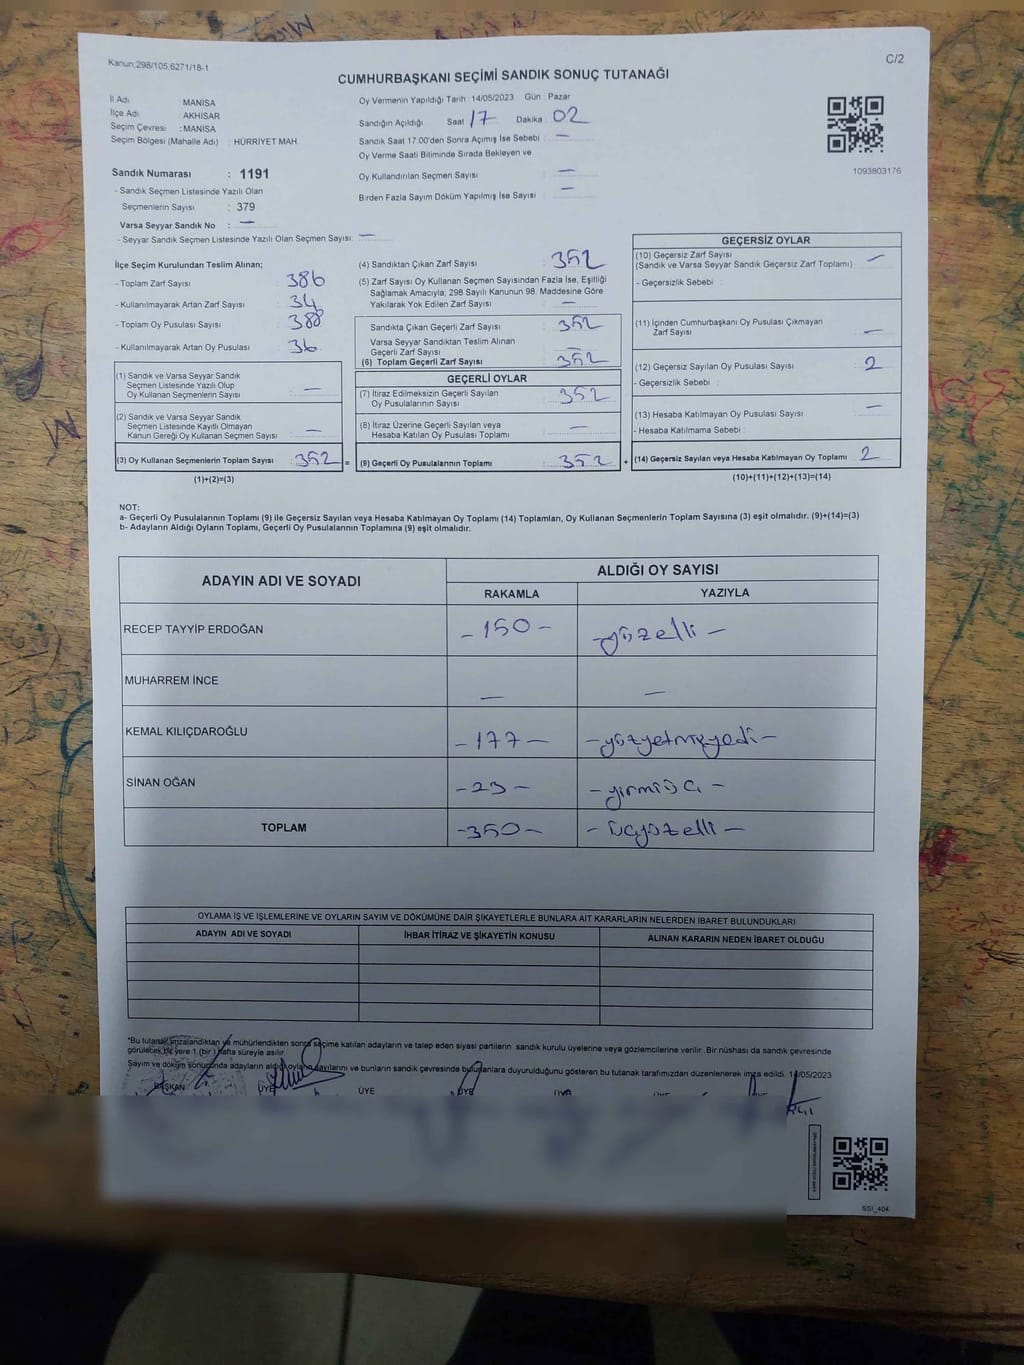 Kanun:298/105;6271/18-1
C/2
CUMHURBAŞKANI SEÇİMİ SANDIK SONUÇ TUTANAĞI
İl Adı : MANİSA
İlçe Adı : AKHİSAR
Seçim Çevresi : MANİSA
Seçim Bölgesi (Mahalle Adı) : HÜRRİYET MAH.
Sandık Numarası : 1191
- Sandık Seçmen Listesinde Yazılı Olan
Seçmenlerin Sayısı : 379
Varsa Seyyar Sandık No : —
- Seyyar Sandık Seçmen Listesinde Yazılı Olan Seçmen Sayısı: —
Oy Vermenin Yapıldığı Tarih :14/05/2023 Gün : Pazar
Sandığın Açıldığı Saat 17 Dakika : 02
Sandık Saat 17:00'den Sonra Açımış İse Sebebi : —
Oy Verme Saati Bitiminde Sırada Bekleyen ve
Oy Kullandırılan Seçmen Sayısı : —
Birden Fazla Sayım Döküm Yapılmış İse Sayısı : —
1093803176
İlçe Seçim Kurulundan Teslim Alınan;
- Toplam Zarf Sayısı : 386
- Kullanılmayarak Artan Zarf Sayısı : 34
- Toplam Oy Pusulası Sayısı : 388
- Kullanılmayarak Artan Oy Pusulası : 36
(1) Sandık ve Varsa Seyyar Sandık
Seçmen Listesinde Yazılı Olup
Oy Kullanan Seçmenlerin Sayısı : —
(2) Sandık ve Varsa Seyyar Sandık
Seçmen Listesinde Kayıtlı Olmayan
Kanun Gereği Oy Kullanan Seçmen Sayısı : —
(3) Oy Kullanan Seçmenlerin Toplam Sayısı : 352 =
(1)+(2)=(3)
(4) Sandıktan Çıkan Zarf Sayısı : 352
(5) Zarf Sayısı Oy Kullanan Seçmen Sayısından Fazla İse, Eşitliği
Sağlamak Amacıyla; 298 Sayılı Kanunun 98. Maddesine Göre
Yakılarak Yok Edilen Zarf Sayısı : —
Sandıkta Çıkan Geçerli Zarf Sayısı : 352
Varsa Seyyar Sandıktan Teslim Alınan
Geçerli Zarf Sayısı : —
(6) Toplam Geçerli Zarf Sayısı : 352
GEÇERLİ OYLAR
(7) İtiraz Edilmeksizin Geçerli Sayılan
Oy Pusulalarının Sayısı : 352
(8) İtiraz Üzerine Geçerli Sayılan veya
Hesaba Katılan Oy Pusulası Toplamı : —
(9) Geçerli Oy Pusulalarının Toplamı : 352 +
GEÇERSİZ OYLAR
(10) Geçersiz Zarf Sayısı : —
(Sandık ve Varsa Seyyar Sandık Geçersiz Zarf Toplamı)
- Geçersizlik Sebebi :
(11) İçinden Cumhurbaşkanı Oy Pusulası Çıkmayan
Zarf Sayısı : —
(12) Geçersiz Sayılan Oy Pusulası Sayısı : 2
- Geçersizlik Sebebi :
(13) Hesaba Katılmayan Oy Pusulası Sayısı : —
- Hesaba Katılmama Sebebi :
(14) Geçersiz Sayılan veya Hesaba Katılmayan Oy Toplamı : 2
(10)+(11)+(12)+(13)=(14)
NOT:
a- Geçerli Oy Pusulalarının Toplamı (9) ile Geçersiz Sayılan veya Hesaba Katılmayan Oy Toplamı (14) Toplamları, Oy Kullanan Seçmenlerin Toplam Sayısına (3) eşit olmalıdır. (9)+(14)=(3)
b- Adayların Aldığı Oyların Toplamı, Geçerli Oy Pusulalarının Toplamına (9) eşit olmalıdır.
ADAYIN ADI VE SOYADI ALDIĞI OY SAYISI
RAKAMLA YAZIYLA
RECEP TAYYİP ERDOĞAN -150- -yüzelli-
MUHARREM İNCE — —
KEMAL KILIÇDAROĞLU -177- -yüzyetmişyedi-
SİNAN OĞAN -23- -yirmiüç-
TOPLAM -350- -üçyüzelli-
OYLAMA İŞ VE İŞLEMLERİNE VE OYLARIN SAYIM VE DÖKÜMÜNE DAİR ŞİKAYETLERLE BUNLARA AİT KARARLARIN NELERDEN İBARET BULUNDUKLARI
ADAYIN ADI VE SOYADI İHBAR İTİRAZ VE ŞİKAYETİN KONUSU ALINAN KARARIN NEDEN İBARET OLDUĞU
*Bu tutanak imzalandıktan ve mühürlendikten sonra seçime katılan adayların ve talep eden siyasi partilerin sandık kurulu üyelerine veya gözlemcilerine verilir. Bir nüshası da sandık çevresinde
görülecek bir yere 1 (bir) hafta süreyle asılır.
Sayım ve döküm sonucunda adayların aldığı oyların sayılarını ve bunların sandık çevresinde bulunanlara duyurulduğunu gösteren bu tutanak tarafımızdan düzenlenerek imza edildi. 14/05/2023
BAŞKAN ÜYE ÜYE ÜYE ÜYE ÜYE ÜYE
SSI_404